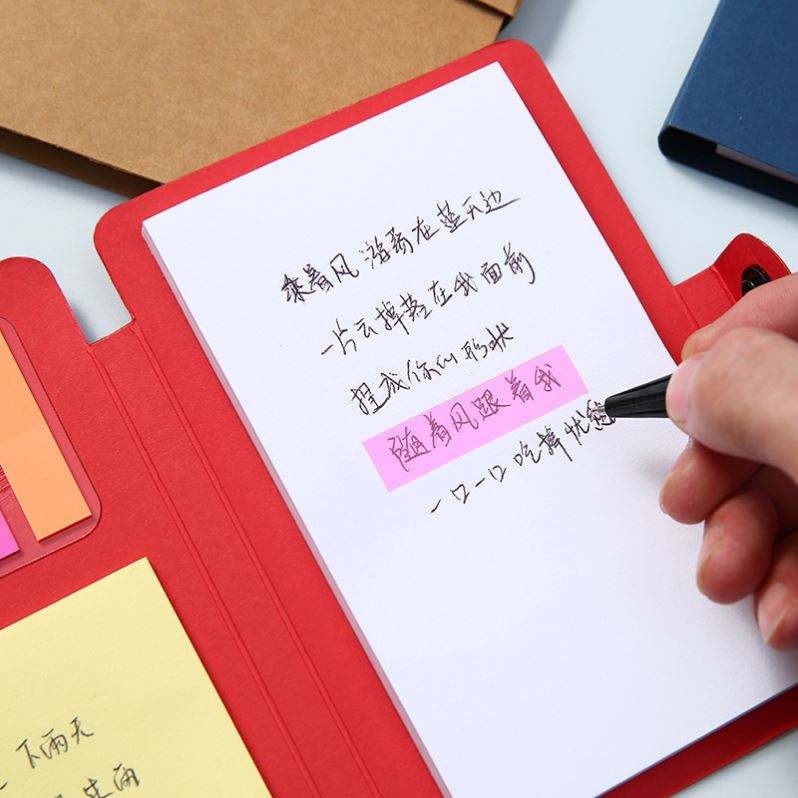 乘着风游荡在蓝天边
一片云掉落在我面前
捏成你的形状
随着风跟着我
一口一口吃掉忧愁
下雨天